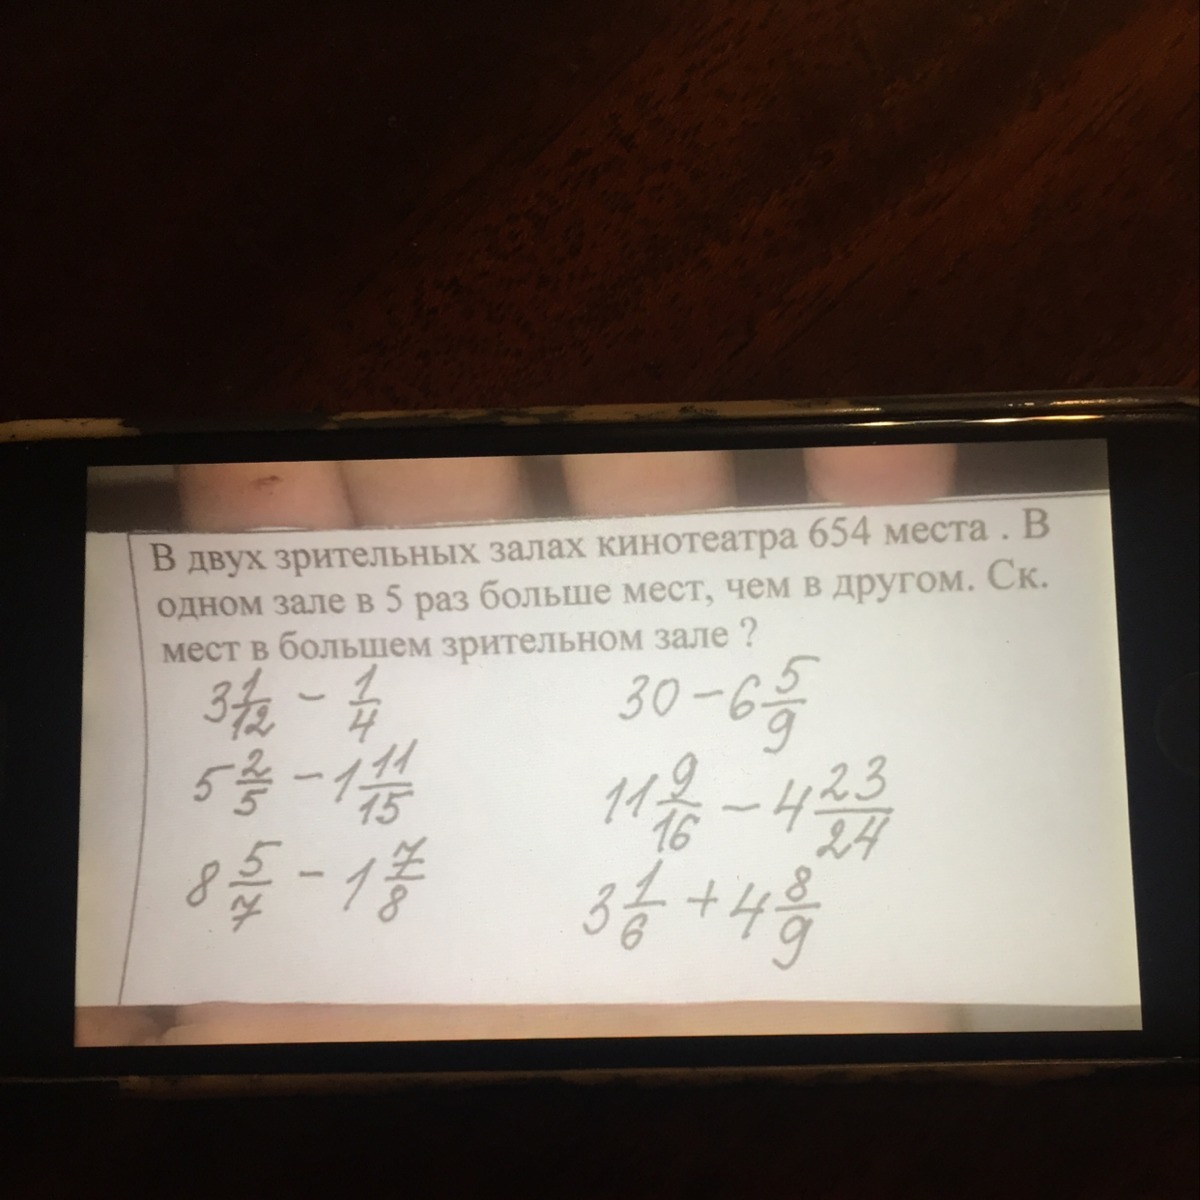 В двух зрительных залах кинотеатра 654 места . В
одном зале в 5 раз больше мест, чем в другом. Ск.
мест в большем зрительном зале ?
3 1/12 - 1/4
30 - 6 5/9
5 2/5 - 1 11/15
11 9/16 - 4 23/24
8 5/7 - 1 7/8
3 1/6 + 4 8/9